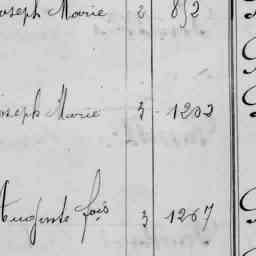 Joseph Marie 2 892
Joseph Marie 3 1202
Auguste fois 3 1267